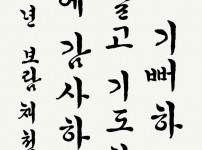 기뻐하
고 기도
에 감사하
년 보람 채